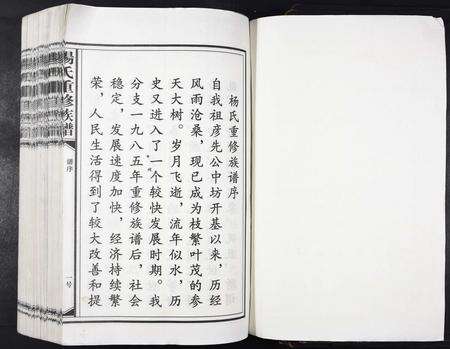 杨氏重修族谱序
自我祖彦先公中坊开基以来，历经
风雨沧桑，现已成为枝繁叶茂的参
天大树。岁月飞逝，流年似水，历
史又进入了一个较快发展时期。我
分支一九八五年重修族谱后，社会
稳定，发展速度加快，经济持续繁
荣，人民生活得到了较大改善和提
杨氏重修族谱
谱序
一号